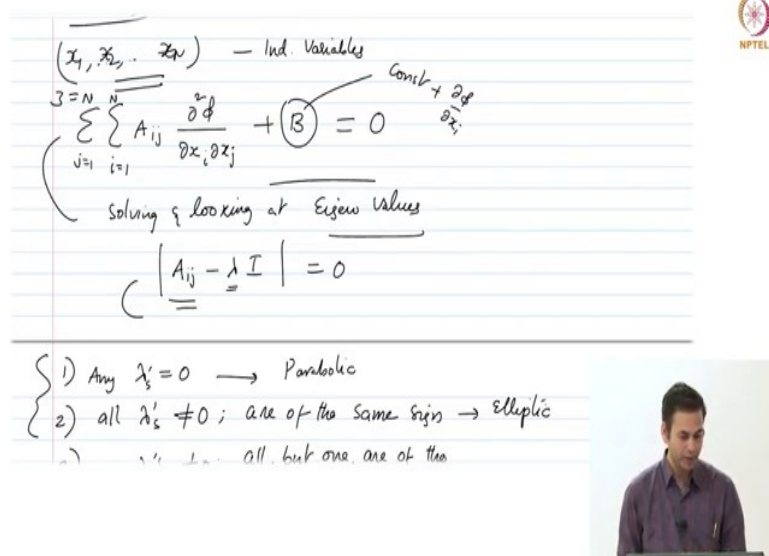 (x₁, x₂, .. x_N) – Ind. Variables
NPTEL
Const + ∂φ/∂x_i
3 = N N
Σ Σ A_ij ∂²φ/∂x_i∂x_j + B = 0
j=1 i=1
Solving & looking at Eigen Values
| A_ij - λ I | = 0
1) Any λ's = 0 → Parabolic
2) all λ's ≠ 0 ; are of the same sign → Elliptic
all but one are of the